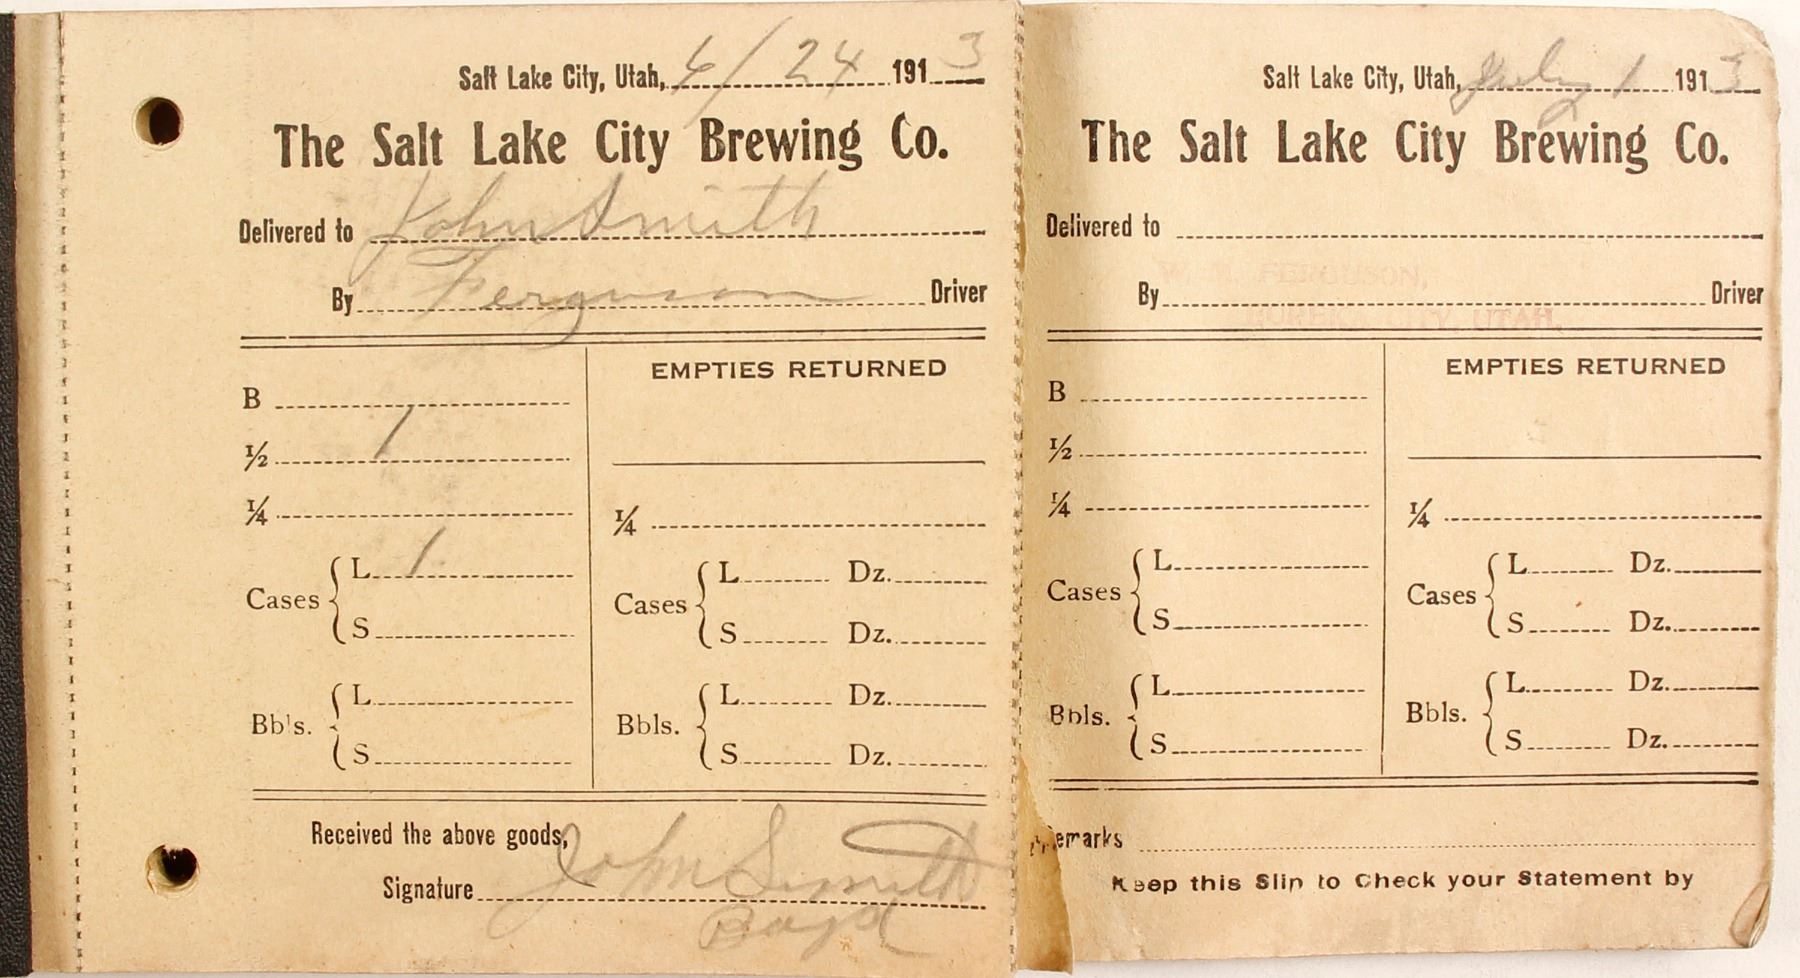 Salt Lake City, Utah, 6/24 1913
The Salt Lake City Brewing Co.
Delivered to John Smith
By Ferguson Driver
B
½ 1
¼
Cases { L 1
S
Bbls. { L
S
EMPTIES RETURNED
¼
Cases { L Dz.
S Dz.
Bbls. { L Dz.
S Dz.
Received the above goods,
Signature John Smith
Boyd
Salt Lake City, Utah, July 1 1913
The Salt Lake City Brewing Co.
Delivered to
FERGUSON,
By Driver
EUREKA CITY, UTAH.
B
½
¼
Cases { L
S
Bbls. { L
S
EMPTIES RETURNED
¼
Cases { L Dz.
S Dz.
Bbls. { L Dz.
S Dz.
Remarks
Keep this Slip to Check your Statement by